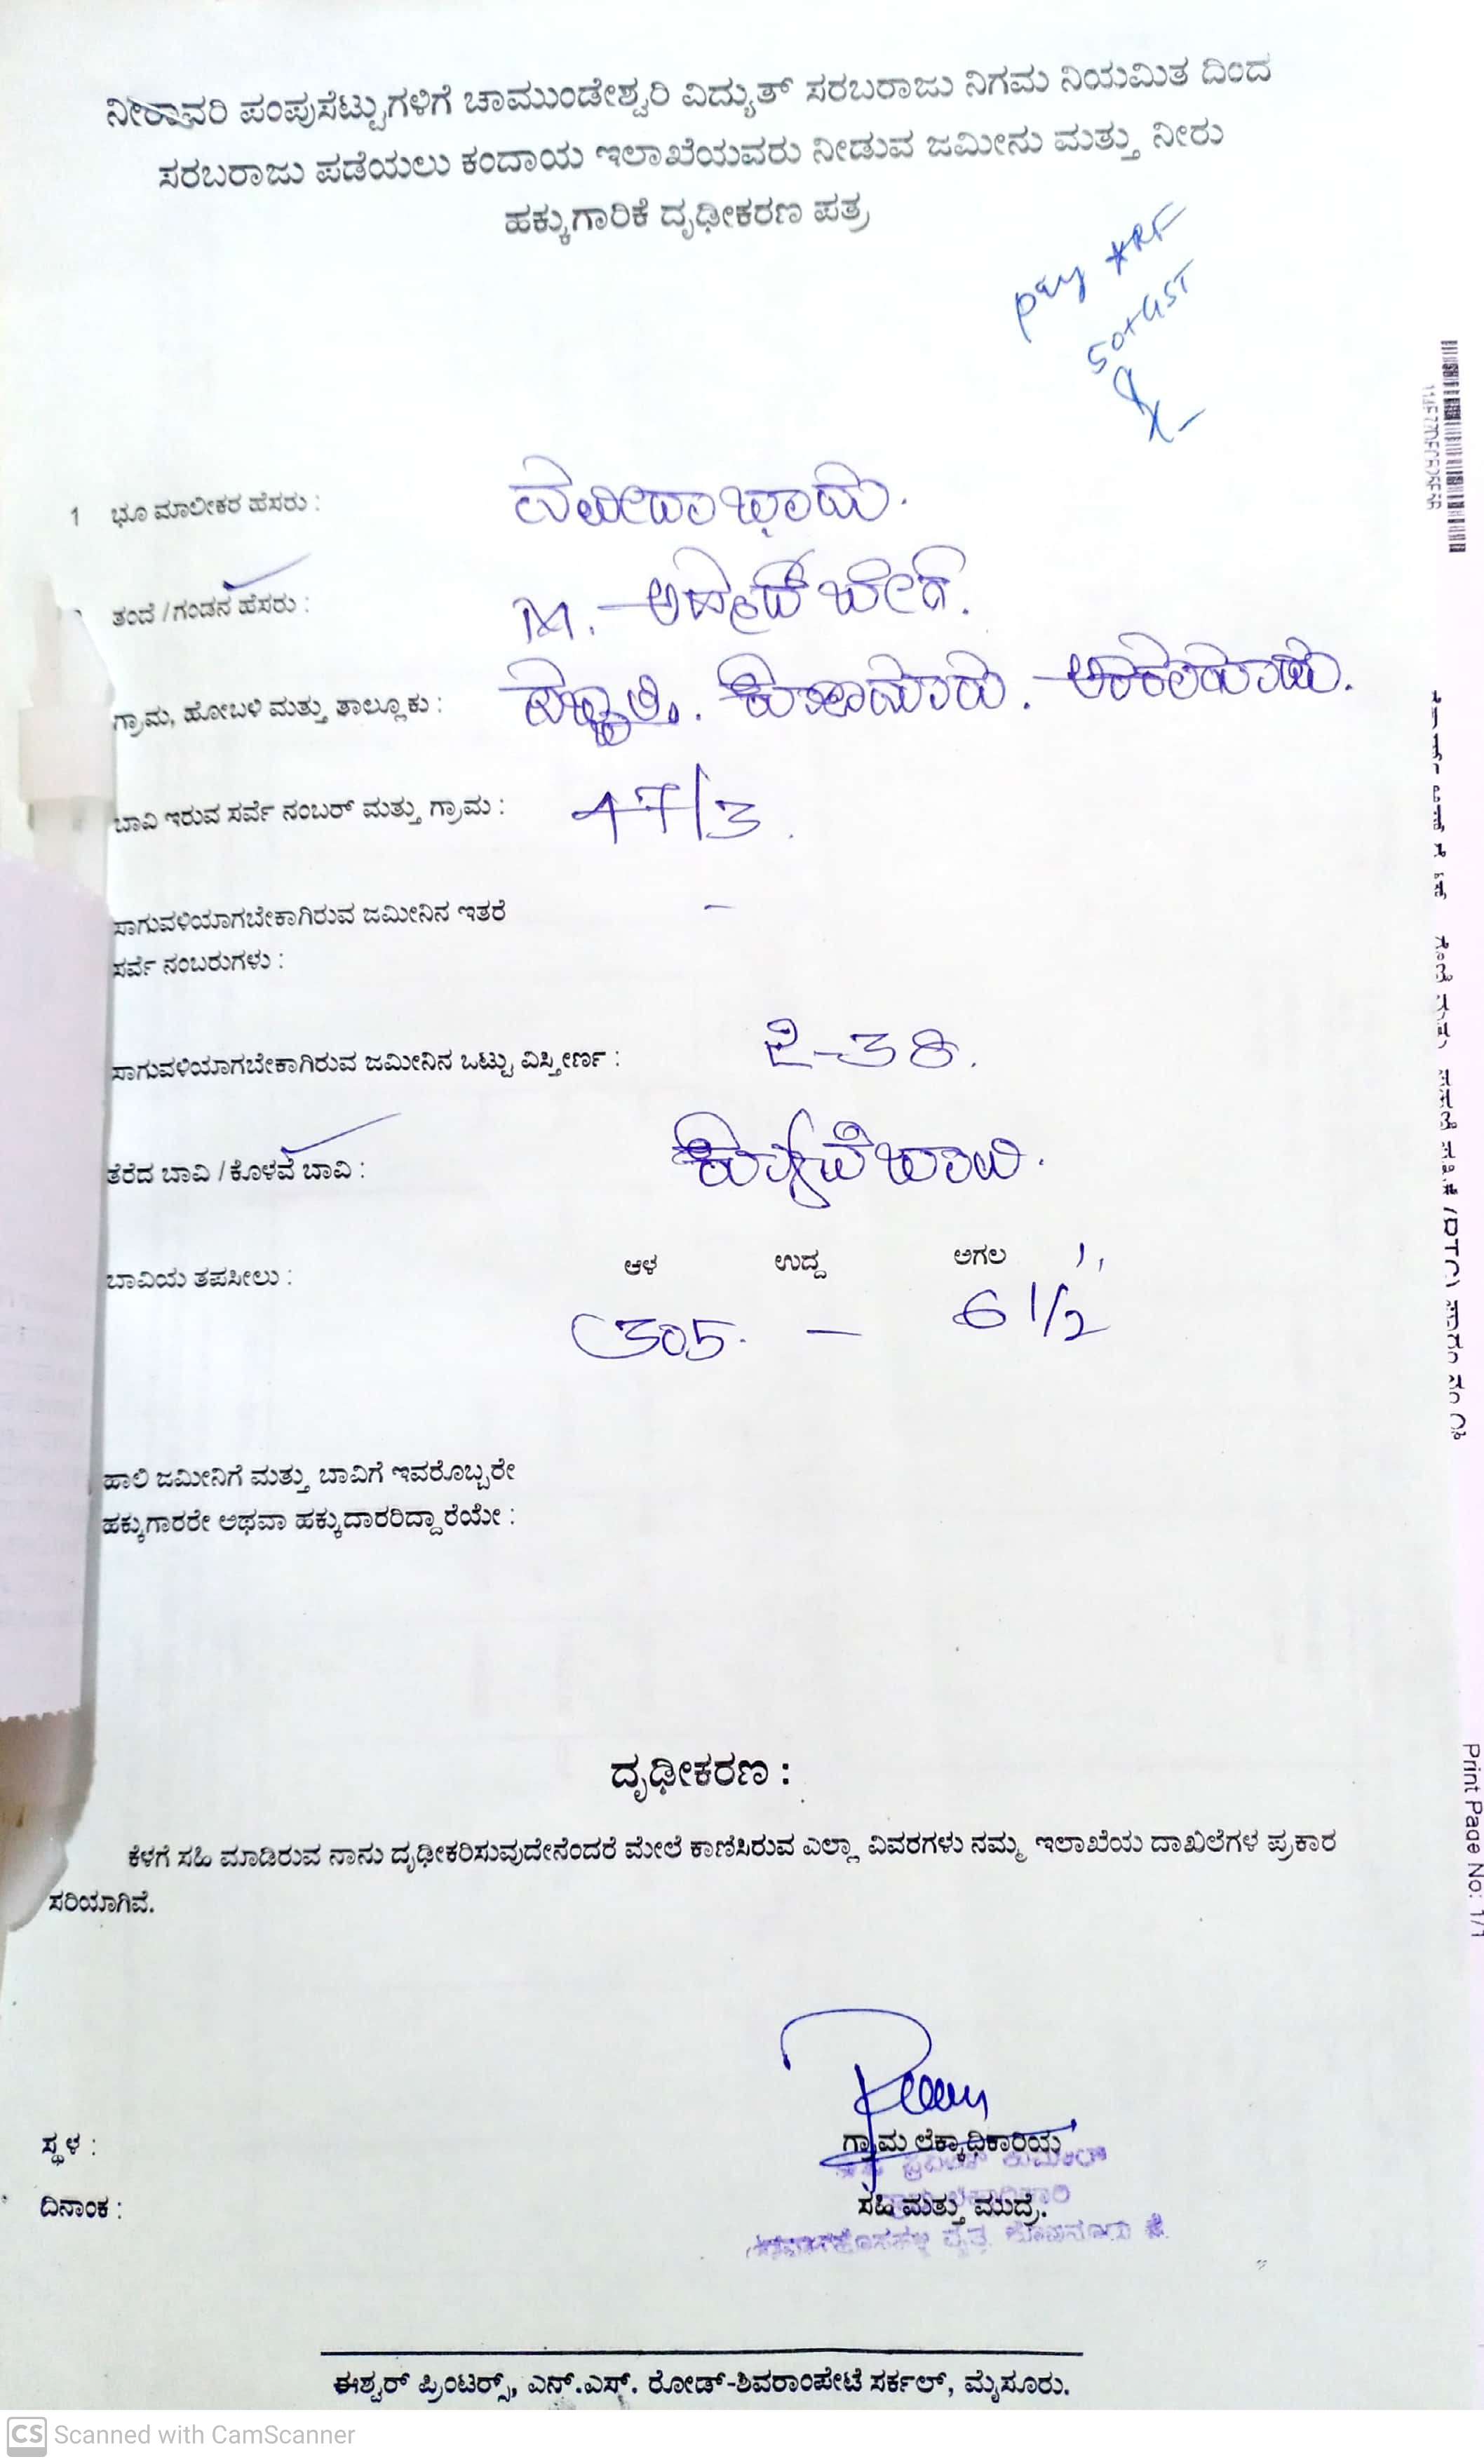 ನೀರಾವರಿ ಪಂಪುಸೆಟ್ಟುಗಳಿಗೆ ಚಾಮುಂಡೇಶ್ವರಿ ವಿದ್ಯುತ್ ಸರಬರಾಜು ನಿಗಮ ನಿಯಮಿತ ದಿಂದ
ಸರಬರಾಜು ಪಡೆಯಲು ಕಂದಾಯ ಇಲಾಖೆಯವರು ನೀಡುವ ಜಮೀನು ಮತ್ತು ನೀರು
ಹಕ್ಕುಗಾರಿಕೆ ದೃಢೀಕರಣ ಪತ್ರ
pay
50+GST
1 ಭೂ ಮಾಲೀಕರ ಹೆಸರು :
ತಂದೆ / ಗಂಡನ ಹೆಸರು : M. ಅಹ್ಮದ್ ಬೇಗ್.
ಗ್ರಾಮ, ಹೋಬಳಿ ಮತ್ತು ತಾಲ್ಲೂಕು :
ಬಾವಿ ಇರುವ ಸರ್ವೆ ನಂಬರ್ ಮತ್ತು ಗ್ರಾಮ : 47/3.
ಸಾಗುವಳಿಯಾಗಬೇಕಾಗಿರುವ ಜಮೀನಿನ ಇತರೆ -
ಸರ್ವೆ ನಂಬರುಗಳು :
ಸಾಗುವಳಿಯಾಗಬೇಕಾಗಿರುವ ಜಮೀನಿನ ಒಟ್ಟು ವಿಸ್ತೀರ್ಣ : 2-38.
ತೆರೆದ ಬಾವಿ / ಕೊಳವೆ ಬಾವಿ : ಕೊಳವೆ ಬಾವಿ.
ಬಾವಿಯ ತಪಸೀಲು : ಆಳ ಉದ್ದ ಅಗಲ
305. - 6 1/2
ಹಾಲಿ ಜಮೀನಿಗೆ ಮತ್ತು ಬಾವಿಗೆ ಇವರೊಬ್ಬರೇ
ಹಕ್ಕುಗಾರರೇ ಅಥವಾ ಹಕ್ಕುದಾರರಿದ್ದಾರೆಯೇ :
ದೃಢೀಕರಣ :
ಕೆಳಗೆ ಸಹಿ ಮಾಡಿರುವ ನಾನು ದೃಢೀಕರಿಸುವುದೇನೆಂದರೆ ಮೇಲೆ ಕಾಣಿಸಿರುವ ಎಲ್ಲಾ ವಿವರಗಳು ನಮ್ಮ ಇಲಾಖೆಯ ದಾಖಲೆಗಳ ಪ್ರಕಾರ
ಸರಿಯಾಗಿವೆ.
ಸ್ಥಳ :
ಗ್ರಾಮ ಲೆಕ್ಕಾಧಿಕಾರಿಯ
ದಿನಾಂಕ :
ಸಹಿ ಮತ್ತು ಮುದ್ರೆ.
ಈಶ್ವರ್ ಪ್ರಿಂಟರ್ಸ್, ಎನ್.ಎಸ್. ರೋಡ್-ಶಿವರಾಂಪೇಟೆ ಸರ್ಕಲ್, ಮೈಸೂರು.
Print Page No: 1/1
CS Scanned with CamScanner